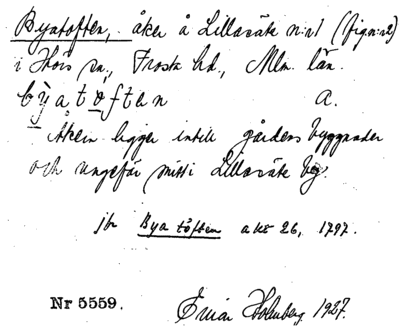 Byatoften, åker å Lillasäte n:r 1 (fig. n:r 2)
i Hörs sn., Frosta hd., Mlm. län.
byatoften a.
Åkern ligger intill gårdens byggnader
och ungefär mitti Lillasäte by.
jbr Bya tåften akt 26, 1797.
Nr 5559. Einar Holmberg 1927.